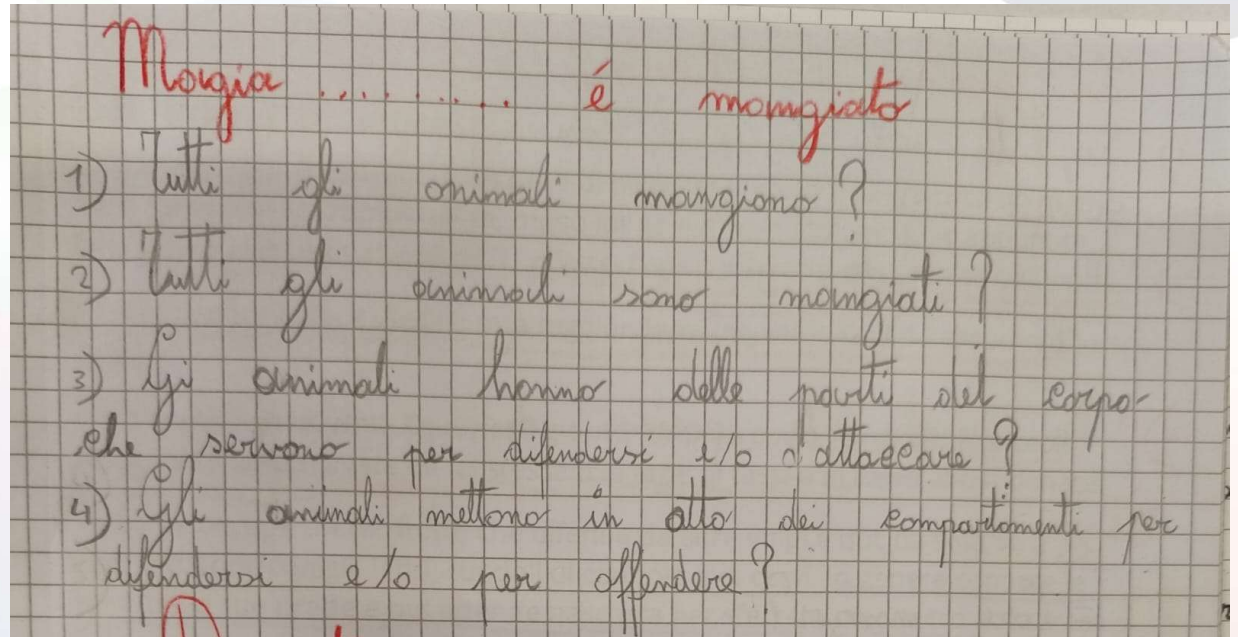 Mangia .......... é mangiato
1) Tutti gli animali mangiano?
2) Tutti gli animali sono mangiati?
3) Gi animali hanno delle parti del corpo
che servono per difendersi e/o d'attaccare?
4) Gli animali mettono in atto dei compartamenti per
difendersi e/o per offendere?